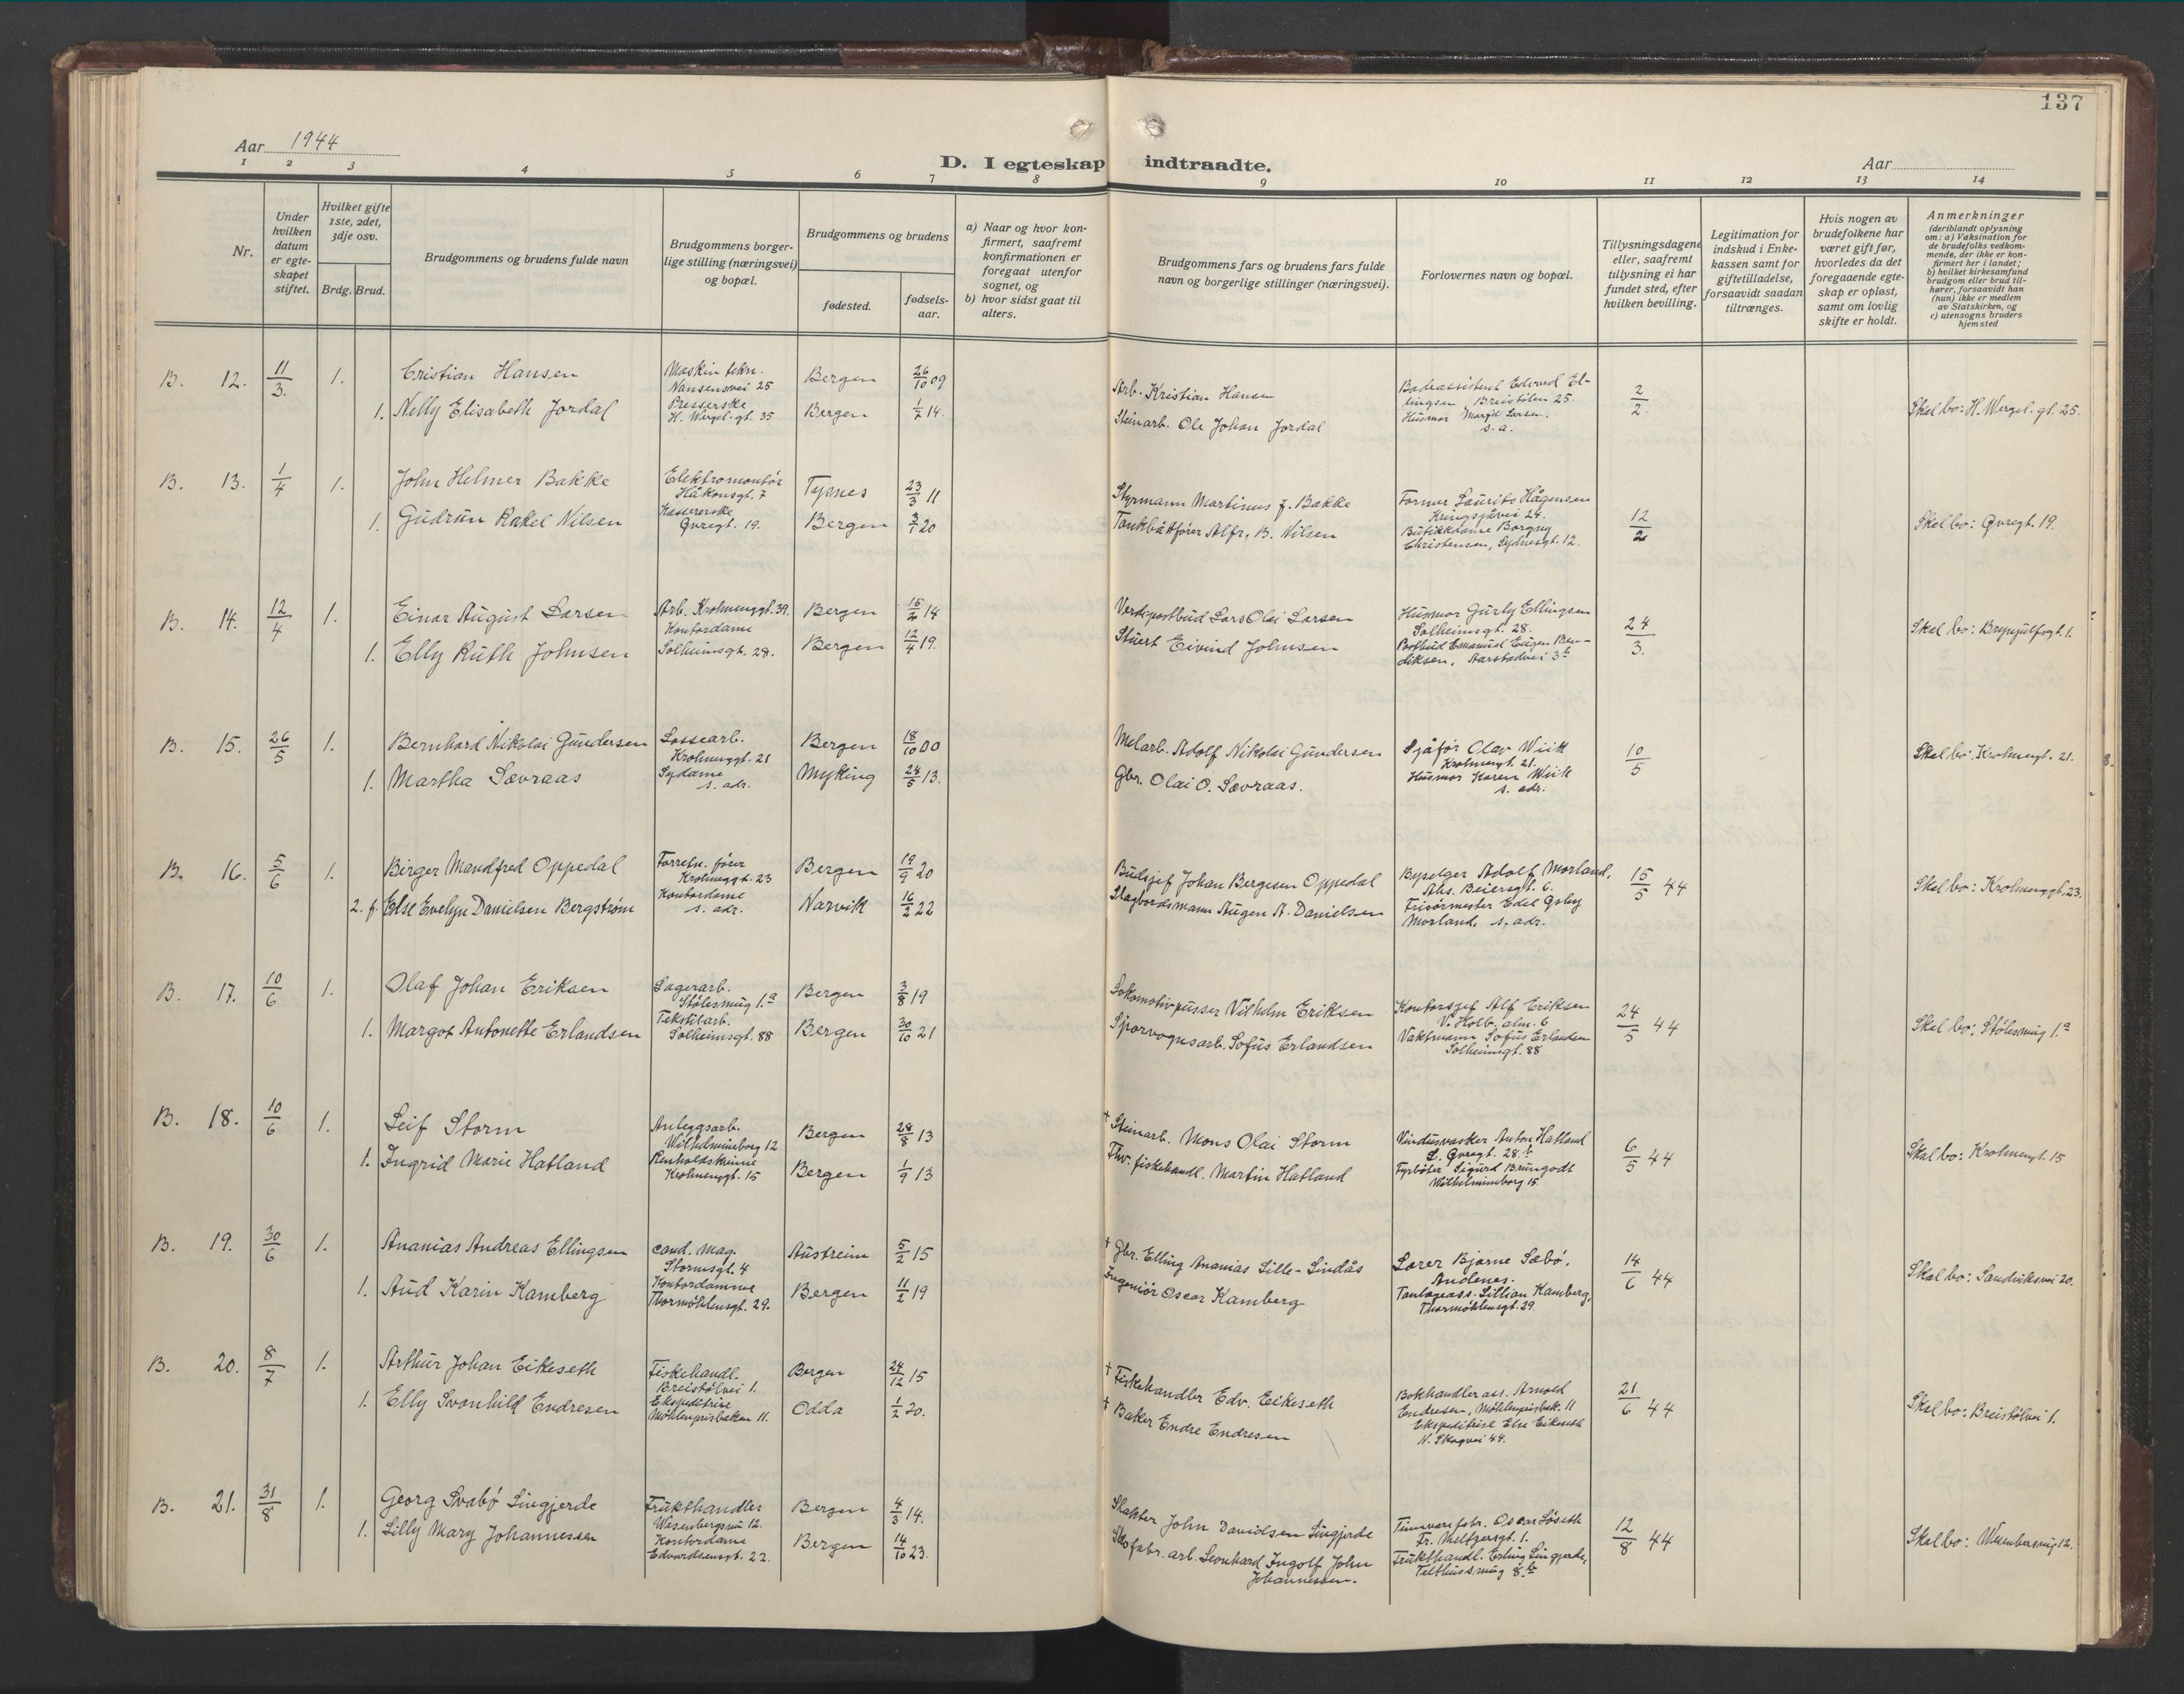 137
Aar 1944
D. I egteskap indtraadte.
Aar
1 2 3 4 5 6 7 8 9 10 11 12 13 14
Nr.
Under hvilken datum er egte- skapet stiftet.
Hvilket gifte 1ste, 2det, 3dje osv.
Brdg. Brud.
Brudgommens og brudens fulde navn
Brudgommens borger- lige stilling (næringsvei) og bopæl.
Brudgommens og brudens
fødested.
fødsels- aar.
a) Naar og hvor kon- firmert, saafremt konfirmationen er foregaat utenfor sognet, og
b) hvor sidst gaat til alters.
Brudgommens fars og brudens fars fulde navn og borgerlige stillinger (næringsvei).
Forlovernes navn og bopæl.
Tillysningsdagene eller, saafremt tillysning ei har fundet sted, efter hvilken bevilling.
Legitimation for indskud i Enke- kassen samt for giftetilladelse, forsaavidt saadan tiltrænges.
Hvis nogen av brudefolkene har været gift før, hvorledes da det foregaaende egte- skap er opløst, samt om lovlig skifte er holdt.
Anmerkninger (deriblandt oplysning om: a) Vaksination for de brudefolks vedkom- mende, der ikke er kon- firmert her i landet; b) hvilket kirkesamfund brudgom eller brud til- hører, forsaavidt han (hun) ikke er medlem av Statskirken, og c) utensogns bruders hjemsted
B. 12. 11/3. 1. Cristian Hansen Maskin tekn. Nansensvei 25 Bergen 26/10 09 Arb. Kristian Hansen Badeassistent Edvard El- lingsen Breistölen 25. 2/2. Skal bo: H. Wergel. gt. 25.
1. Nelly Elisabeth Jordal Presserske H. Wergel. gt. 35 Bergen 1/2 14. Steinarb. Ole Johan Jordal Husmor Margit Larsen. s. a.
B. 13. 1/4 1. John Helmer Bakke Elektromontør Håkonsgt. 7 Tysnes 23/3 11 Styrmann Martinus J. Bakke Former Laurits Hågensen Kringsjåvei 24. 12/2 Skal bo: Øvregt. 19.
1. Gudrun Rakel Nilsen Kassererske Øvregt. 19. Bergen 3/1 20 Tankbåtfører Alfr. B. Nilsen Butikkdame Borgny Christensen, Sydnesgt. 12.
B. 14. 12/4 1. Einar August Larsen Arb. Krohnenggt. 39. Bergen 15/2 14 Verdipostbud Lars Olai Larsen Husmor Gurly Ellingsen Solheimsgt. 28. 24/3. Skal bo: Brynjulfsgt. 1.
1. Elly Ruth Johnsen Kontordame Solheimsgt. 28. Bergen 12/4 19. Stuert Eivind Johnsen Postbud Emanuel Eugen Ben- diksen, Aarstadvei 3b
B. 15. 26/5 1. Bernhard Nikolai Gundersen Lossearb. Krohnenggt. 21 Bergen 18/10 00 Melarb. Adolf Nikolai Gundersen Sjåfør Olav Wiik Krohnengt. 21. 10/5 Skal bo: Krohnengt. 21.
1. Martha Sævraas Sydame s. adr. Myking 24/5 13. Gbr. Olai O. Sævraas. Husmor Karen Wiik s. adr.
B. 16. 5/6 1. Birger Mandfred Oppedal Forretn. fører Krohnenggt. 23 Bergen 19/9 20 Budsjef Johan Bergesen Oppedal Byselger Adolf Morland, Abs. Beiersgt. 6. 15/5 44 Skal bo: Krohnenggt. 23.
2. f. Else Evelyn Danielsen Bergstrøm Kontordame s. adr. Narvik 16/2 22 Slagbordsmann Augen A. Danielsen Frisörmester Edel Morland, s. adr.
B. 17. 10/6 1. Olaf Johan Eriksen Lagerarb. Stølesmug 1.a Bergen 3/8 19 Lokomotivpusser Vilhelm Eriksen Kontorsjef Alf Eriksen V. Holb. alm. 6 24/5 44 Skal bo: Stølesmug 1.a
1. Margot Antonette Erlandsen Tekstilarb. Solheimsgt. 88 Bergen 30/10 21 Sporvognsarb. Sofus Erlandsen Vaktmann Sofus Erlandsen Solheimsgt. 88
B. 18. 10/6 1. Leif Storm Anleggsarb. Wilhelmineborg 12 Bergen 28/8 13 † Steinarb. Mons Olai Storm Vindusvasker Anton Hatland L. Øvregt. 28.b 6/5 44 Skal bo: Krohnengt. 15
1. Ingrid Marie Hatland Renholdskvinne Krohnenggt. 15 Bergen 1/9 13 Fhv. fiskehandl. Martin Hatland Fyrbøter Sigurd Brungodt Wilhelmineborg 15.
B. 19. 30/6 1. Ananias Andreas Ellingsen cand. mag. Stormsgt. 4 Austreim 5/2 15 † Gbr. Elling Ananias Lille-Lindås Lærer Bjarne Sæbø, Andenes. 14/6 44 Skal bo: Sandviksvei 20.
1. Aud Karin Kamberg Kontordamme Thormøhlensgt. 29. Bergen 11/2 19 Ingeniør Oscar Kamberg Tanlegeass. Lillian Kamberg, Thormøhlensgt. 29.
B. 20. 8/7 1. Arthur Johan Eikeseth Fiskehandl. Breistølvei 1. Bergen 24/12 15 † Fiskehandler Edv. Eikeseth Bokhandler ass. Arnold Endresen, Møhlenprisbak. 11 21/6 44 Skal bo: Breistølvei 1.
1. Elly Svonhild Endresen Ekspeditrise Møhlenprisbakken 11. Odda 1/2 20. † Baker Endre Endresen Ekspeditrise Else Eikeseth N. Skogvei 44.
B. 21. 31/8 1. Georg Svabø Lingjerde Frukthandler Wesenbergsmu 12. Bergen 4/3 14. Slakter John Davidsen Lingjerde Tinnvarefabr. Oscar Løseth Fr. Meltzersgt. 1. 12/8 44 Skal bo: Wesenbersmug 12.
1. Lilly Mary Johannessen Kontordame Edvardsensgt. 22. Bergen 14/10 23. Skofabr. arb. Leonhard Ingolf John Johannessen. Frukthandl. Erling Lingjerde, Telthussmug 8.b